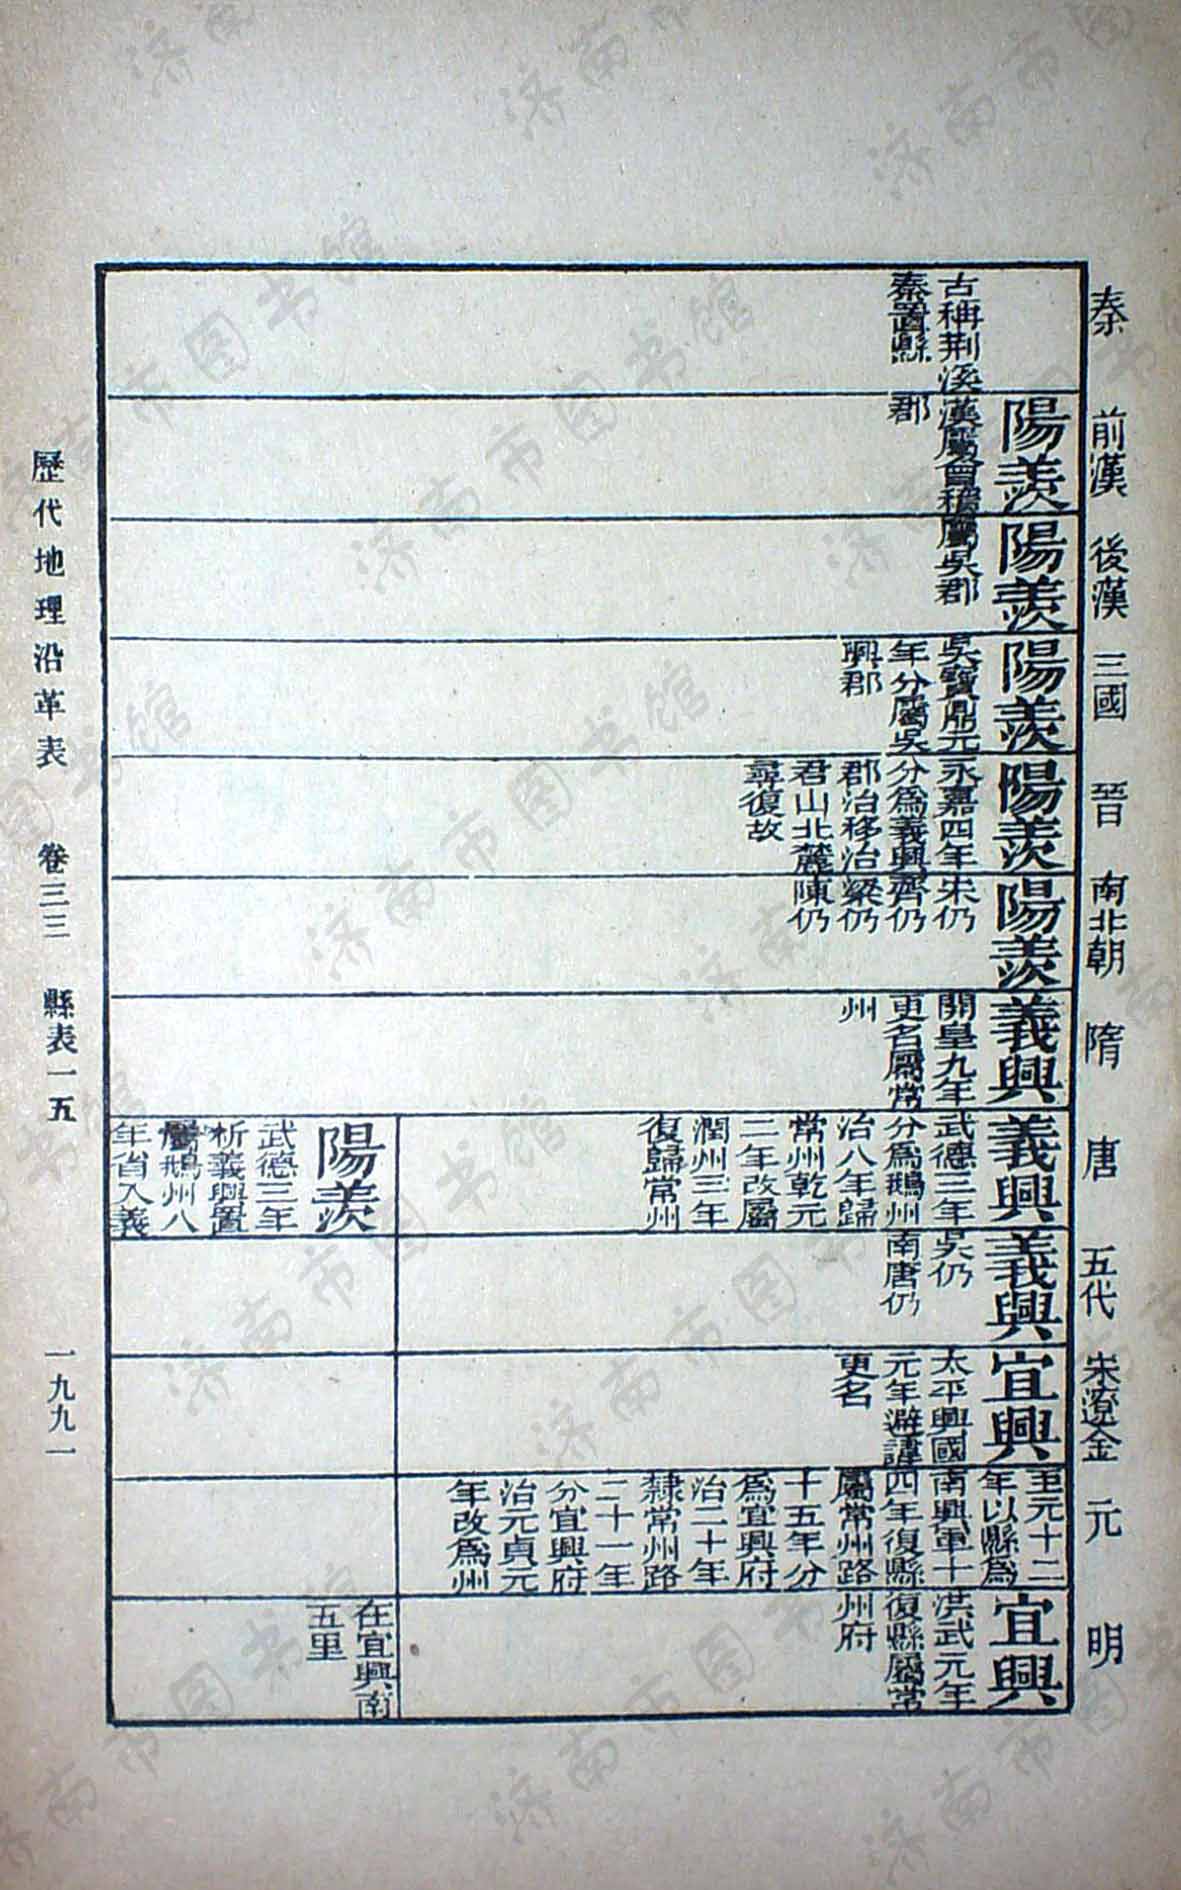 秦
前漢
後漢
三國
晉
南北朝
隋
唐
五代
宋遼金
元
明
古稱荆溪
秦置縣
陽羨
漢屬會稽
郡
陽羨
屬吳郡
陽羨
吳寶鼎元
年分屬吳
興郡
陽羨
永嘉四年
分爲義興
郡治移治
君山北麓
尋復故
陽羨
宋仍
齊仍
梁仍
陳仍
義興
開皇九年
更名屬常
州
義興
武德三年
分爲鵝州
治八年歸
常州乾元
二年改屬
潤州三年
復歸常州
陽羨
武德三年
析義興置
屬鵝州八
年省入義
義興
吳仍
南唐仍
宜興
太平興國
元年避諱
更名
至元十二
年以縣爲
南興軍十
四年復縣
屬常州路
十五年分
爲宜興府
治二十年
隸常州路
二十一年
分宜興府
治元貞元
年改爲州
宜興
洪武元年
復縣屬常
州府
在宜興南
五里
歷代地理沿革表 卷三三 縣表一五 一九九一
济南市图书馆